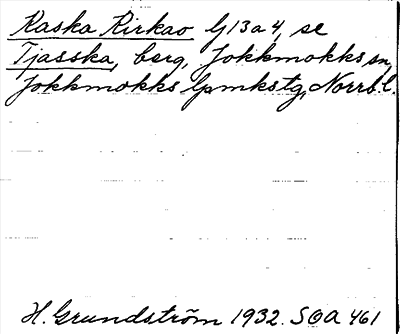 Raska Kirkao G13a4, se
Tjasska, berg, Jokkmokks sn,
Jokkmokks lpmkstg, Norrb.l.
H. Grundström 1932. SOA 461